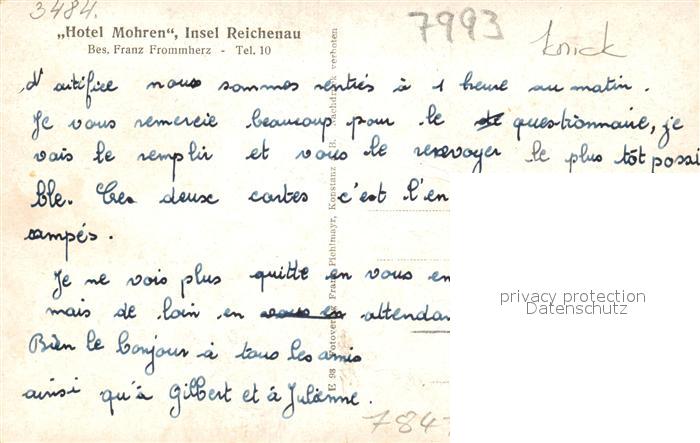 3484.
7993
knick
„Hotel Mohren“, Insel Reichenau
Bes. Franz Frommherz - Tel. 10
d'artifice nous sommes rentrés à 1 heure au matin.
Je vous remercie beaucoup pour le de questionnaire, je
vais le remplir et vous le renvoyer le plus tôt possi
ble. Ces deux cartes c'est l'en
campés.
Je ne vois plus quitte en vous en
mais de loin en vous en attendan
Bien le bonjour à tous les amis
ainsi qu'à Gilbert et à Julienne.
E 98 Fotoverlag Franz Pichlmayr, Konstanz a. B. Nachdruck verboten
privacy protection
Datenschutz
784